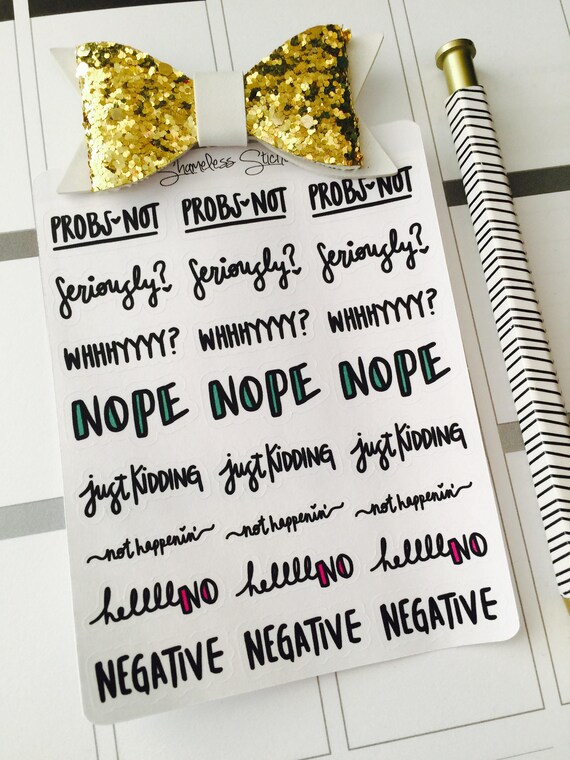 Shameless
PROBS NOT PROBS NOT PROBS NOT
seriously? seriously? seriously?
WHHHYYYY? WHHHYYYY? WHHHYYYY?
NOPE NOPE NOPE
just KIDDING just KIDDING just KIDDING
~not happenin'~ ~not happenin'~ ~not happenin'~
helllllNO helllllNO helllllNO
NEGATIVE NEGATIVE NEGATIVE